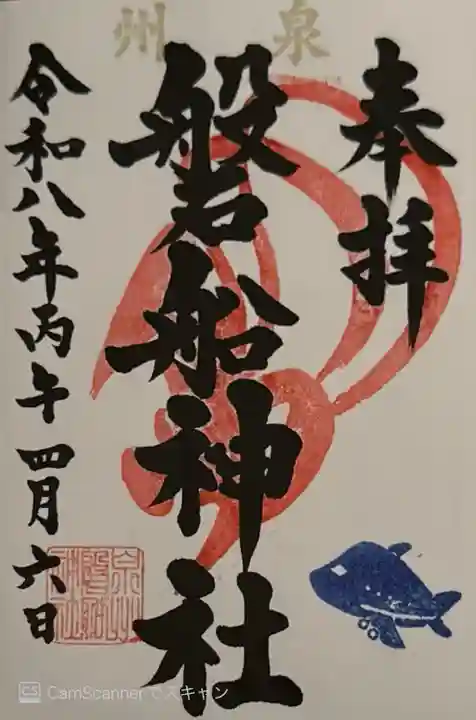 泉州
奉拝
磐船神社
令和八年丙午四月六日
CS CamScannerでスキャン